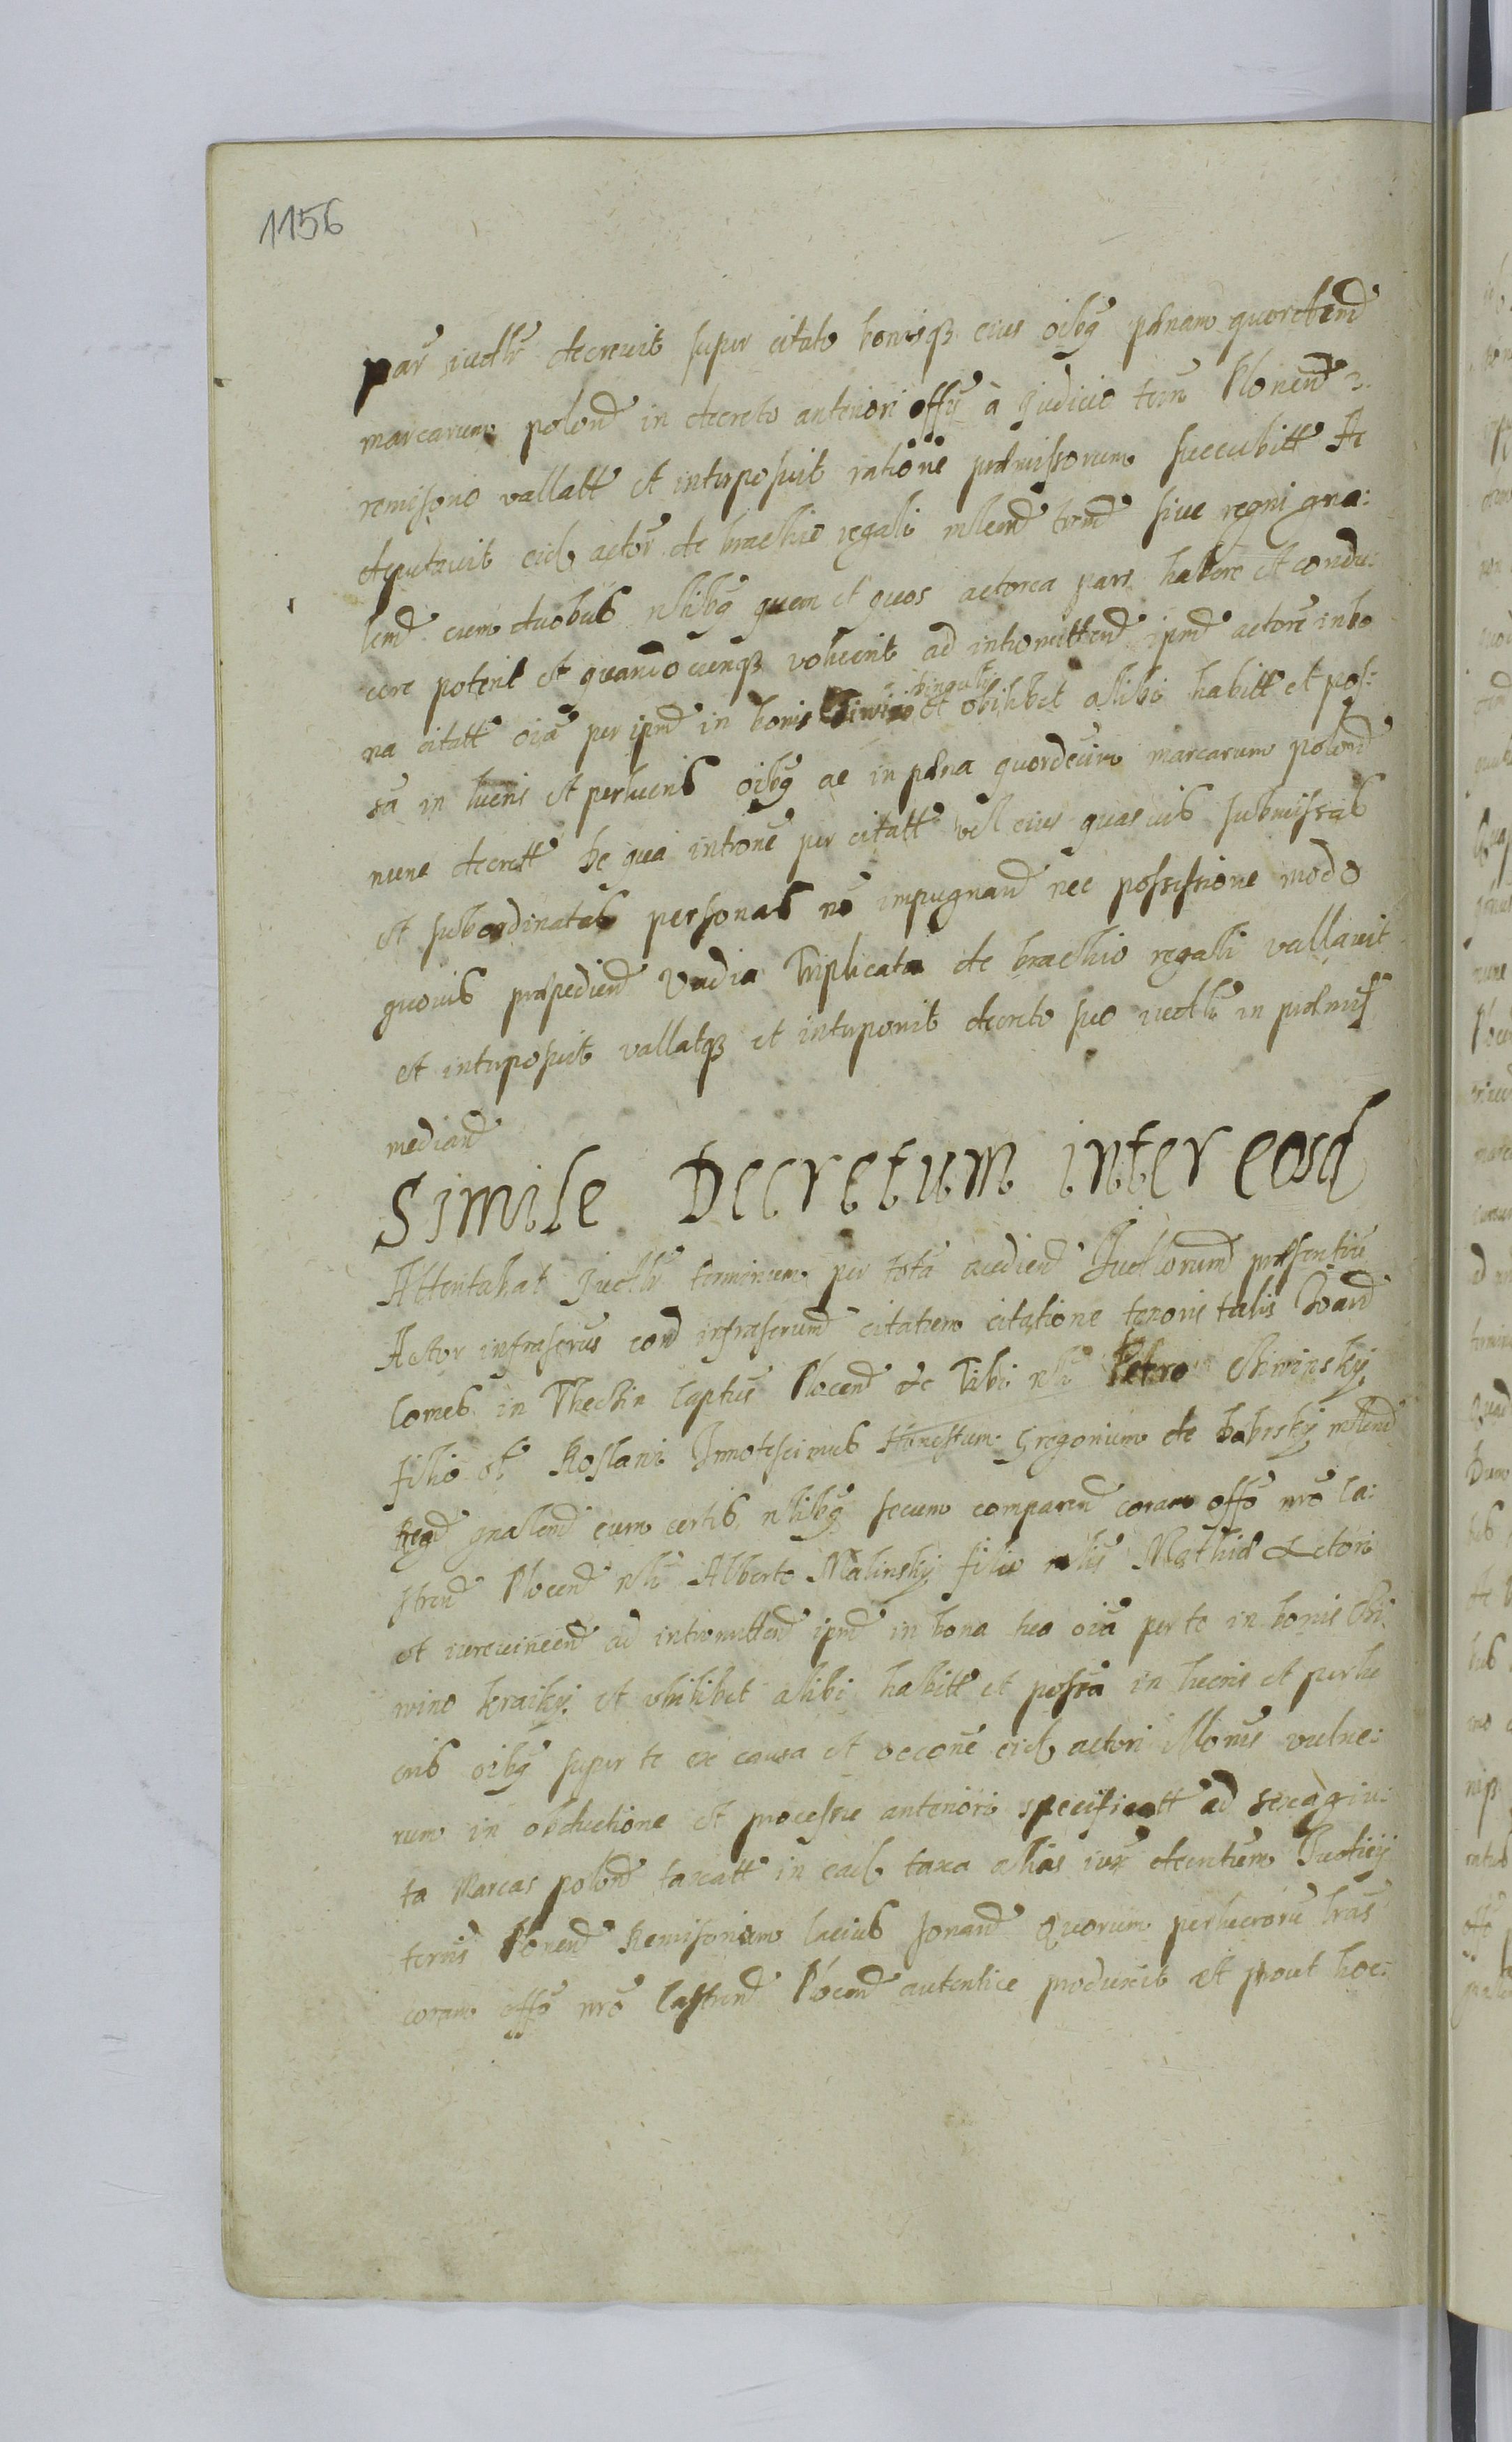 1156
par iudlr decreuit super citato bonisqz eius oibg pdnam quordend
marcarum polond in decreto anteriori offy à Judicio tern Plonend
remissorio vallatt et interposuit ratione pdmissorum succubitt Ac
deputauit eid actor de brachio regali mlend tremd siue regni gna:
lemd cum duobus nlibg quem et quos actorea pars habere et condu:
cere poterit et quandocunqz voluerit ad intromittend ipmd actore in bo
na citatt oia per ipmd in bonis Chiwino et singulis vbilibet alibi habitt et pos:
sa in lucris et perlucris oibg ac in pdna quordecim marcarum polond
nunc decrett De qua introne per citatt vel eius quasuis submissas
et subordinatas personas no impugnand nec possessione modo
quouis prdpediend Vadia Triplicata de brachio regali vallauit
et interposuit vallatqz et interponit decreto suo iudlr in prdmis
mediand
Simile Decretum inter eosd
Attentabat Judlr terminum per tota audiend Judlorumd prdsentiu
Actor infrascrus cond infrascrumd citatum citatione tenoris talis Joand
Comes in Thechin Captus Plocend etc Tibi nli Petro Chiwinsky
filio ol Koslani Innotescimus Honestum Gregorium de Babrsky mlend
Regd gnalend cum certis nlibg secum comparend coram offo nro Ca:
strend Plocend nli Alberto Malinsky filio nlis Mathid Actori
et iureuincend ad intromittend ipmd in bona tua oia per te in bonis Chi:
wino kraiky et vbilibet alibi habitt et possa in lucris et perlu
cris oibg super te ex causa et occone eid actori illonis vulne:
rum in obductione et processu anteriori specificatt ad sexagin:
ta Marcas polond taxatt in ead taxa alias iux decretum Judicij
terris Plonend Remissorium lacius sonand Quorum perlucroru lras
coram offo nro Castrend Plocend autentice produxit Et prout hoc: